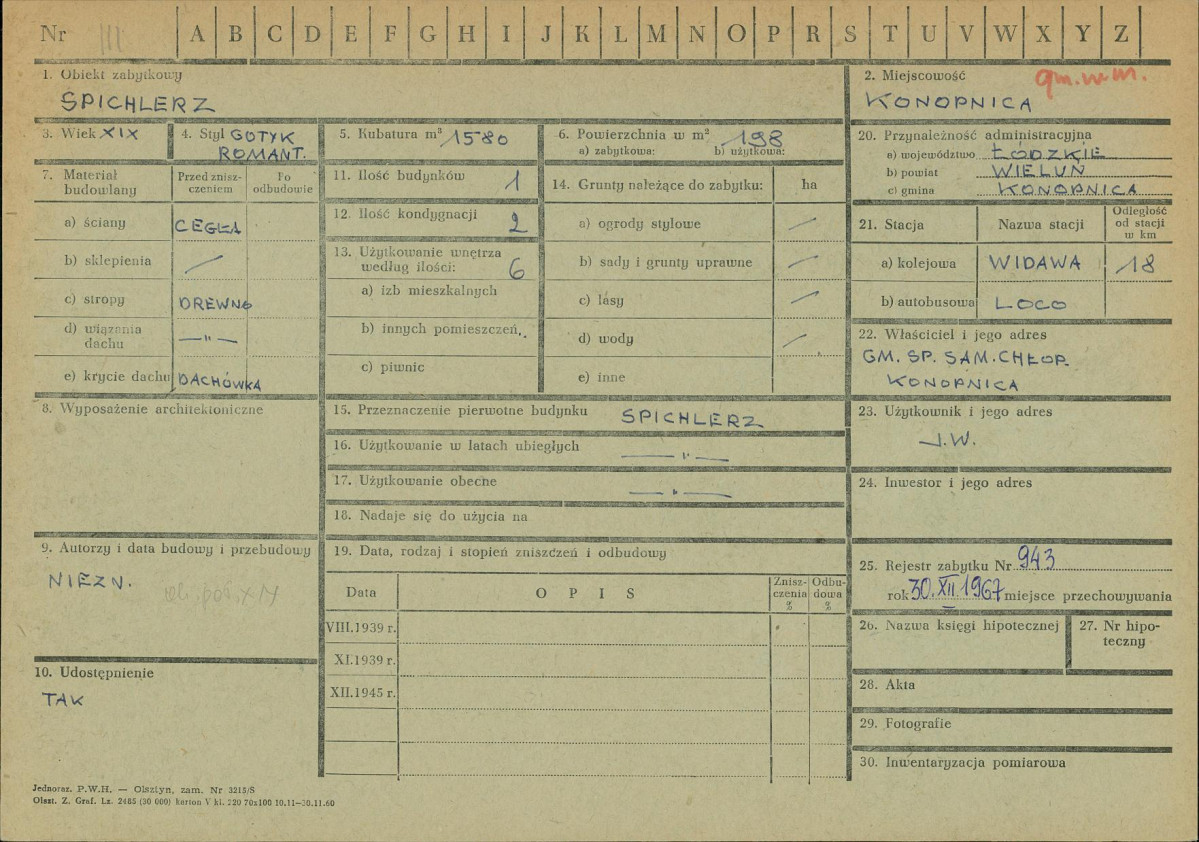 Nr III A B C D E F G H I J K L M N O P R S T U V W X Y Z
1. Obiekt zabytkowy
SPICHLERZ
2. Miejscowość
KONOPNICA
3. Wiek XIX
4. Styl GOTYK
ROMANT.
5. Kubatura m³ 1580
6. Powierzchnia w m² 198
a) zabytkowa: b) użytkowa:
20. Przynależność administracyjna
a) województwo ŁÓDZKIE
b) powiat WIELUŃ
c) gmina KONOPNICA
7. Materiał
budowlany
Przed znisz-
czeniem
Po
odbudowie
a) ściany CEGŁA
b) sklepienia —
c) stropy DREWNO
d) wiązania
dachu —"—
e) krycie dachu DACHÓWKA
11. Ilość budynków 1
12. Ilość kondygnacji 2
13. Użytkowanie wnętrza
według ilości: 6
a) izb mieszkalnych
b) innych pomieszczeń
c) piwnic
14. Grunty należące do zabytku: ha
a) ogrody stylowe —
b) sady i grunty uprawne —
c) lasy —
d) wody —
e) inne
21. Stacja
Nazwa stacji
Odległość
od stacji
w km
a) kolejowa WIDAWA 18
b) autobusowa LOCO
22. Właściciel i jego adres
GM. SP. SAM. CHŁOP.
KONOPNICA
8. Wyposażenie architektoniczne
15. Przeznaczenie pierwotne budynku SPICHLERZ
16. Użytkowanie w latach ubiegłych —"—
17. Użytkowanie obecne —"—
18. Nadaje się do użycia na
23. Użytkownik i jego adres
J.W.
24. Inwestor i jego adres
9. Autorzy i data budowy i przebudowy
NIEZN.
19. Data, rodzaj i stopień zniszczeń i odbudowy
Data
O P I S
Znisz-
czenia
%
Odbu-
dowa
%
VIII.1939 r.
XI.1939 r.
XII.1945 r.
25. Rejestr zabytku Nr 943
rok 30.XII.1967 miejsce przechowywania
26. Nazwa księgi hipotecznej
27. Nr hipo-
teczny
10. Udostępnienie
TAK
28. Akta
29. Fotografie
30. Inwentaryzacja pomiarowa
Jednoraz. P.W.H. — Olsztyn, zam. Nr 3215/S
Olszt. Z. Graf. Lz. 2485 (30 000) karton V kl. 220 70x100 10.11—30.11.60